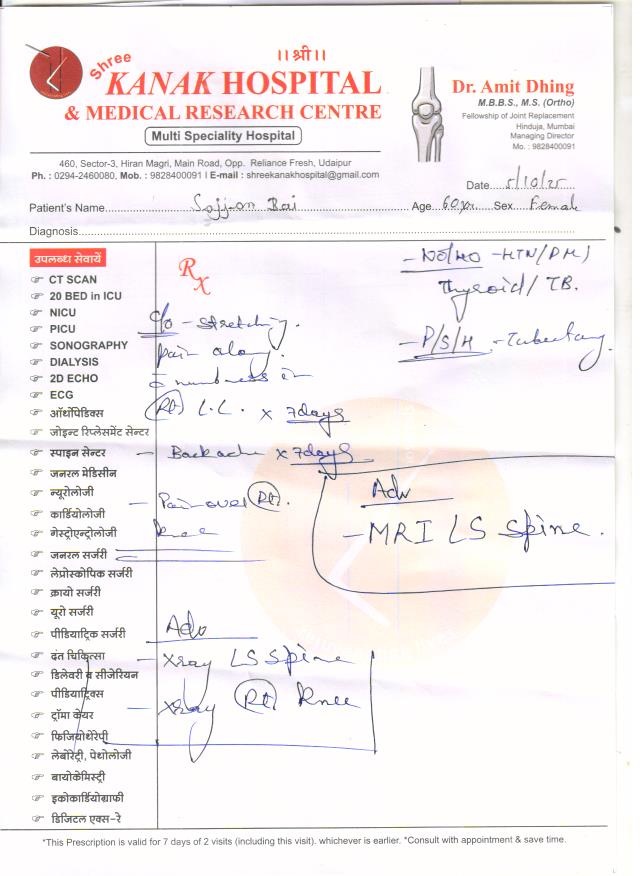 ।। श्री ।।
Shree
KANAK HOSPITAL
& MEDICAL RESEARCH CENTRE
Multi Speciality Hospital
Dr. Amit Dhing
M.B.B.S., M.S. (Ortho)
Fellowship of Joint Replacement
Hinduja, Mumbai
Managing Director
Mo. : 9828400091
460, Sector-3, Hiran Magri, Main Road, Opp. Reliance Fresh, Udaipur
Ph. : 0294-2460080, Mob. : 9828400091 | E-mail : shreekanakhospital@gmail.com
Date 5/10/25
Patient's Name Sajjan Bai Age 60 yr Sex Female
Diagnosis
उपलब्ध सेवायें
CT SCAN
20 BED in ICU
NICU
PICU
SONOGRAPHY
DIALYSIS
2D ECHO
ECG
ऑर्थोपिडिक्स
जोइन्ट रिप्लेसमेंट सेन्टर
स्पाइन सेन्टर
जनरल मेडिसीन
न्यूरोलोजी
कार्डियोलोजी
गेस्ट्रोएन्ट्रोलोजी
जनरल सर्जरी
लेप्रोस्कोपिक सर्जरी
क्रायो सर्जरी
यूरो सर्जरी
पीडियाट्रिक सर्जरी
दंत चिकित्सा
डिलेवरी व सीजेरियन
पीडियाट्रिक्स
ट्रॉमा केयर
फिजियोथेरेपी
लेबोरेट्री, पेथोलोजी
बायोकेमिस्ट्री
इकोकार्डियोग्राफी
डिजिटल एक्स-रे
Rx
- No/H/O - HTN/DM/
Thyroid/TB.
- P/S/H - Tubectomy
c/o - stretching
pain along
c numbness in
Rt. L.L. x 7days
- Backache x 7days
- Pain over Rt.
knee
Adv
- MRI LS Spine.
Adv
- Xray LS Spine
- Xray Rt. Knee
*This Prescription is valid for 7 days of 2 visits (including this visit). whichever is earlier. *Consult with appointment & save time.